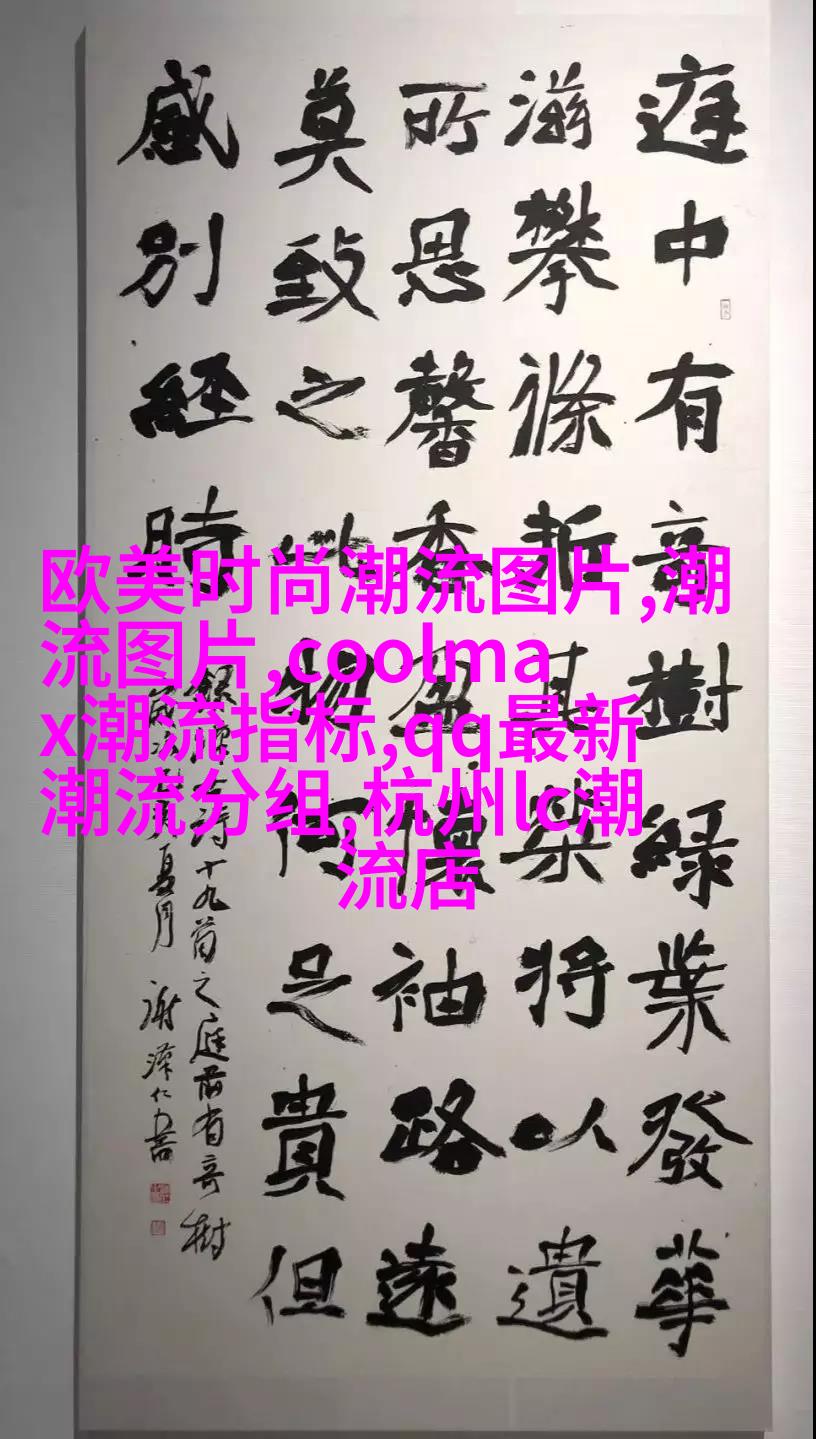 庭中有奇樹綠葉發華
滋攀條折其榮將以遺
所思馨香盈懷袖路遠
莫致之此物何足貴但
感別經時
詩十九首之庭前有奇樹
夏月 謝澤仁書
欧美时尚潮流图片,潮
流图片,coolma
x潮流指标,qq最新
潮流分组,杭州lc潮
流店